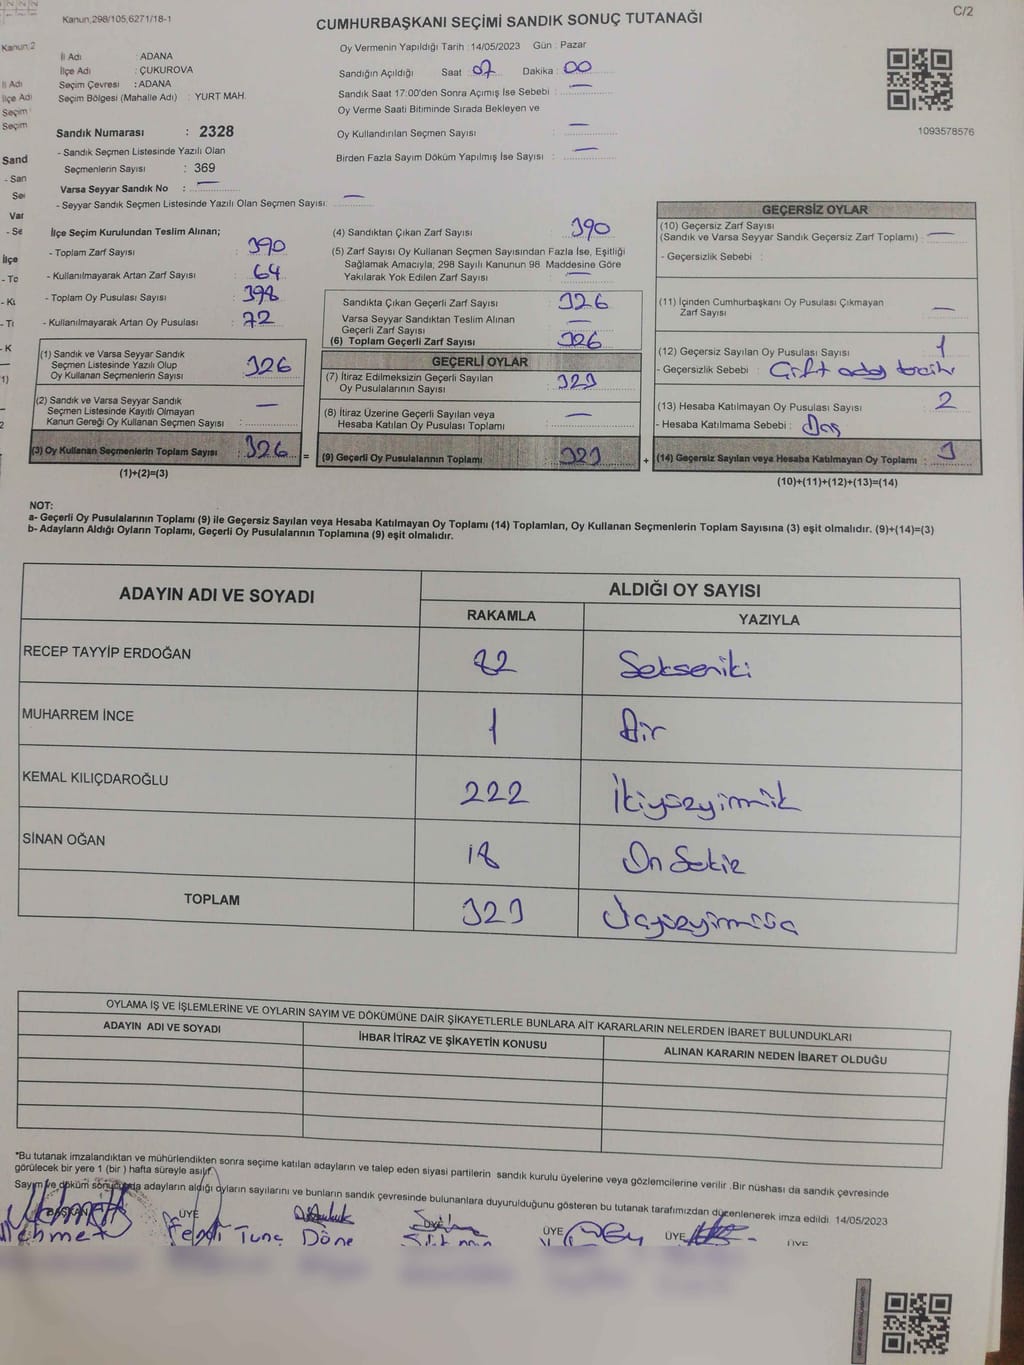 Kanun,298/105,6271/18-1
CUMHURBAŞKANI SEÇİMİ SANDIK SONUÇ TUTANAĞI
C/2
Kanun,2
İl Adı : ADANA
İlçe Adı : ÇUKUROVA
Seçim Çevresi : ADANA
Seçim Bölgesi (Mahalle Adı) : YURT MAH.
Oy Vermenin Yapıldığı Tarih : 14/05/2023 Gün : Pazar
Sandığın Açıldığı Saat : 07 Dakika : 00
Sandık Saat 17:00'den Sonra Açımış İse Sebebi : —
Oy Verme Saati Bitiminde Sırada Bekleyen ve
Oy Kullandırılan Seçmen Sayısı : —
Birden Fazla Sayım Döküm Yapılmış İse Sayısı : —
1093578576
Sandık Numarası : 2328
- Sandık Seçmen Listesinde Yazılı Olan
Seçmenlerin Sayısı : 369
Varsa Seyyar Sandık No : —
- Seyyar Sandık Seçmen Listesinde Yazılı Olan Seçmen Sayısı : —
İlçe Seçim Kurulundan Teslim Alınan;
- Toplam Zarf Sayısı : 390
- Kullanılmayarak Artan Zarf Sayısı : 64
- Toplam Oy Pusulası Sayısı : 398
- Kullanılmayarak Artan Oy Pusulası : 72
(1) Sandık ve Varsa Seyyar Sandık
Seçmen Listesinde Yazılı Olup
Oy Kullanan Seçmenlerin Sayısı : 326
(2) Sandık ve Varsa Seyyar Sandık
Seçmen Listesinde Kayıtlı Olmayan
Kanun Gereği Oy Kullanan Seçmen Sayısı : —
(3) Oy Kullanan Seçmenlerin Toplam Sayısı : 326
(1)+(2)=(3)
(4) Sandıktan Çıkan Zarf Sayısı : 390
(5) Zarf Sayısı Oy Kullanan Seçmen Sayısından Fazla İse, Eşitliği
Sağlamak Amacıyla, 298 Sayılı Kanunun 98. Maddesine Göre
Yakılarak Yok Edilen Zarf Sayısı : —
Sandıkta Çıkan Geçerli Zarf Sayısı : 326
Varsa Seyyar Sandıktan Teslim Alınan
Geçerli Zarf Sayısı : —
(6) Toplam Geçerli Zarf Sayısı : 326
GEÇERLİ OYLAR
(7) İtiraz Edilmeksizin Geçerli Sayılan
Oy Pusulalarının Sayısı : 323
(8) İtiraz Üzerine Geçerli Sayılan veya
Hesaba Katılan Oy Pusulası Toplamı : —
= (9) Geçerli Oy Pusulalarının Toplamı : 323
GEÇERSİZ OYLAR
(10) Geçersiz Zarf Sayısı
(Sandık ve Varsa Seyyar Sandık Geçersiz Zarf Toplamı) : —
- Geçersizlik Sebebi :
(11) İçinden Cumhurbaşkanı Oy Pusulası Çıkmayan
Zarf Sayısı : —
(12) Geçersiz Sayılan Oy Pusulası Sayısı : 1
- Geçersizlik Sebebi : Çift aday tercih
(13) Hesaba Katılmayan Oy Pusulası Sayısı : 2
- Hesaba Katılmama Sebebi : Boş
+ (14) Geçersiz Sayılan veya Hesaba Katılmayan Oy Toplamı : 3
(10)+(11)+(12)+(13)=(14)
NOT:
a- Geçerli Oy Pusulalarının Toplamı (9) ile Geçersiz Sayılan veya Hesaba Katılmayan Oy Toplamı (14) Toplamları, Oy Kullanan Seçmenlerin Toplam Sayısına (3) eşit olmalıdır. (9)+(14)=(3)
b- Adayların Aldığı Oyların Toplamı, Geçerli Oy Pusulalarının Toplamına (9) eşit olmalıdır.
ADAYIN ADI VE SOYADI ALDIĞI OY SAYISI
RAKAMLA YAZIYLA
RECEP TAYYİP ERDOĞAN 82 Sekseniki
MUHARREM İNCE 1 Bir
KEMAL KILIÇDAROĞLU 222 İkiyüzyirmiik
SİNAN OĞAN 18 On Sekiz
TOPLAM 323 Üçyüzyirmiüç
OYLAMA İŞ VE İŞLEMLERİNE VE OYLARIN SAYIM VE DÖKÜMÜNE DAİR ŞİKAYETLERLE BUNLARA AİT KARARLARIN NELERDEN İBARET BULUNDUKLARI
ADAYIN ADI VE SOYADI İHBAR İTİRAZ VE ŞİKAYETİN KONUSU ALINAN KARARIN NEDEN İBARET OLDUĞU
*Bu tutanak imzalandıktan ve mühürlendikten sonra seçime katılan adayların ve talep eden siyasi partilerin sandık kurulu üyelerine veya gözlemcilerine verilir .Bir nüshası da sandık çevresinde
görülecek bir yere 1 (bir ) hafta süreyle asılır.
Sayım ve döküm sonucunda adayların aldığı oyların sayılarını ve bunların sandık çevresinde bulunanlara duyurulduğunu gösteren bu tutanak tarafımızdan düzenlenerek imza edildi. 14/05/2023
BAŞKAN ÜYE ÜYE ÜYE ÜYE ÜYE
Mehmet Fehdi Tunç Döne